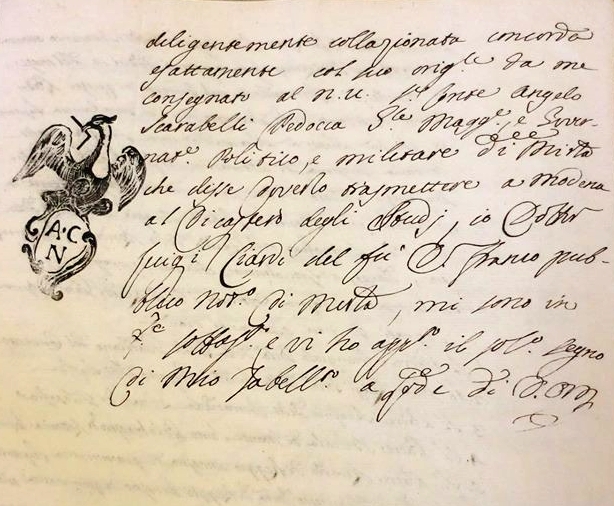 diligentemente collazionata concorda
esattamente col suo orig.le da me
consegnato al N.U. Sr. Conte Angelo
Scarabelli Pedocca S.le Magg.e, e Gover-
nat.e Politico, e militare di Mirla
che disse doverlo trasmettere a Modena
al Dicastero degli Studj, io Dottor
Luigi Ciardi del fu S. Franco pub-
blico Not.o di Mirla, mi sono in
f.e sottos.to e vi ho app.to il sol.o segno
di Mio Tabell.to a
A·C
N